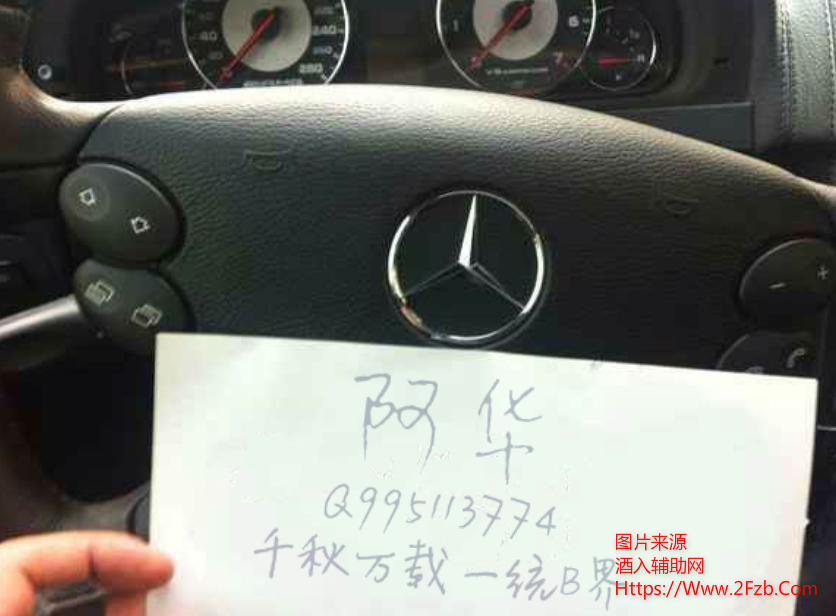 40
240
260
280
1
6
7
阿华
Q995113774
千秋万载一统B界
图片来源
酒入辅助网
Https://Www.2Fzb.Com